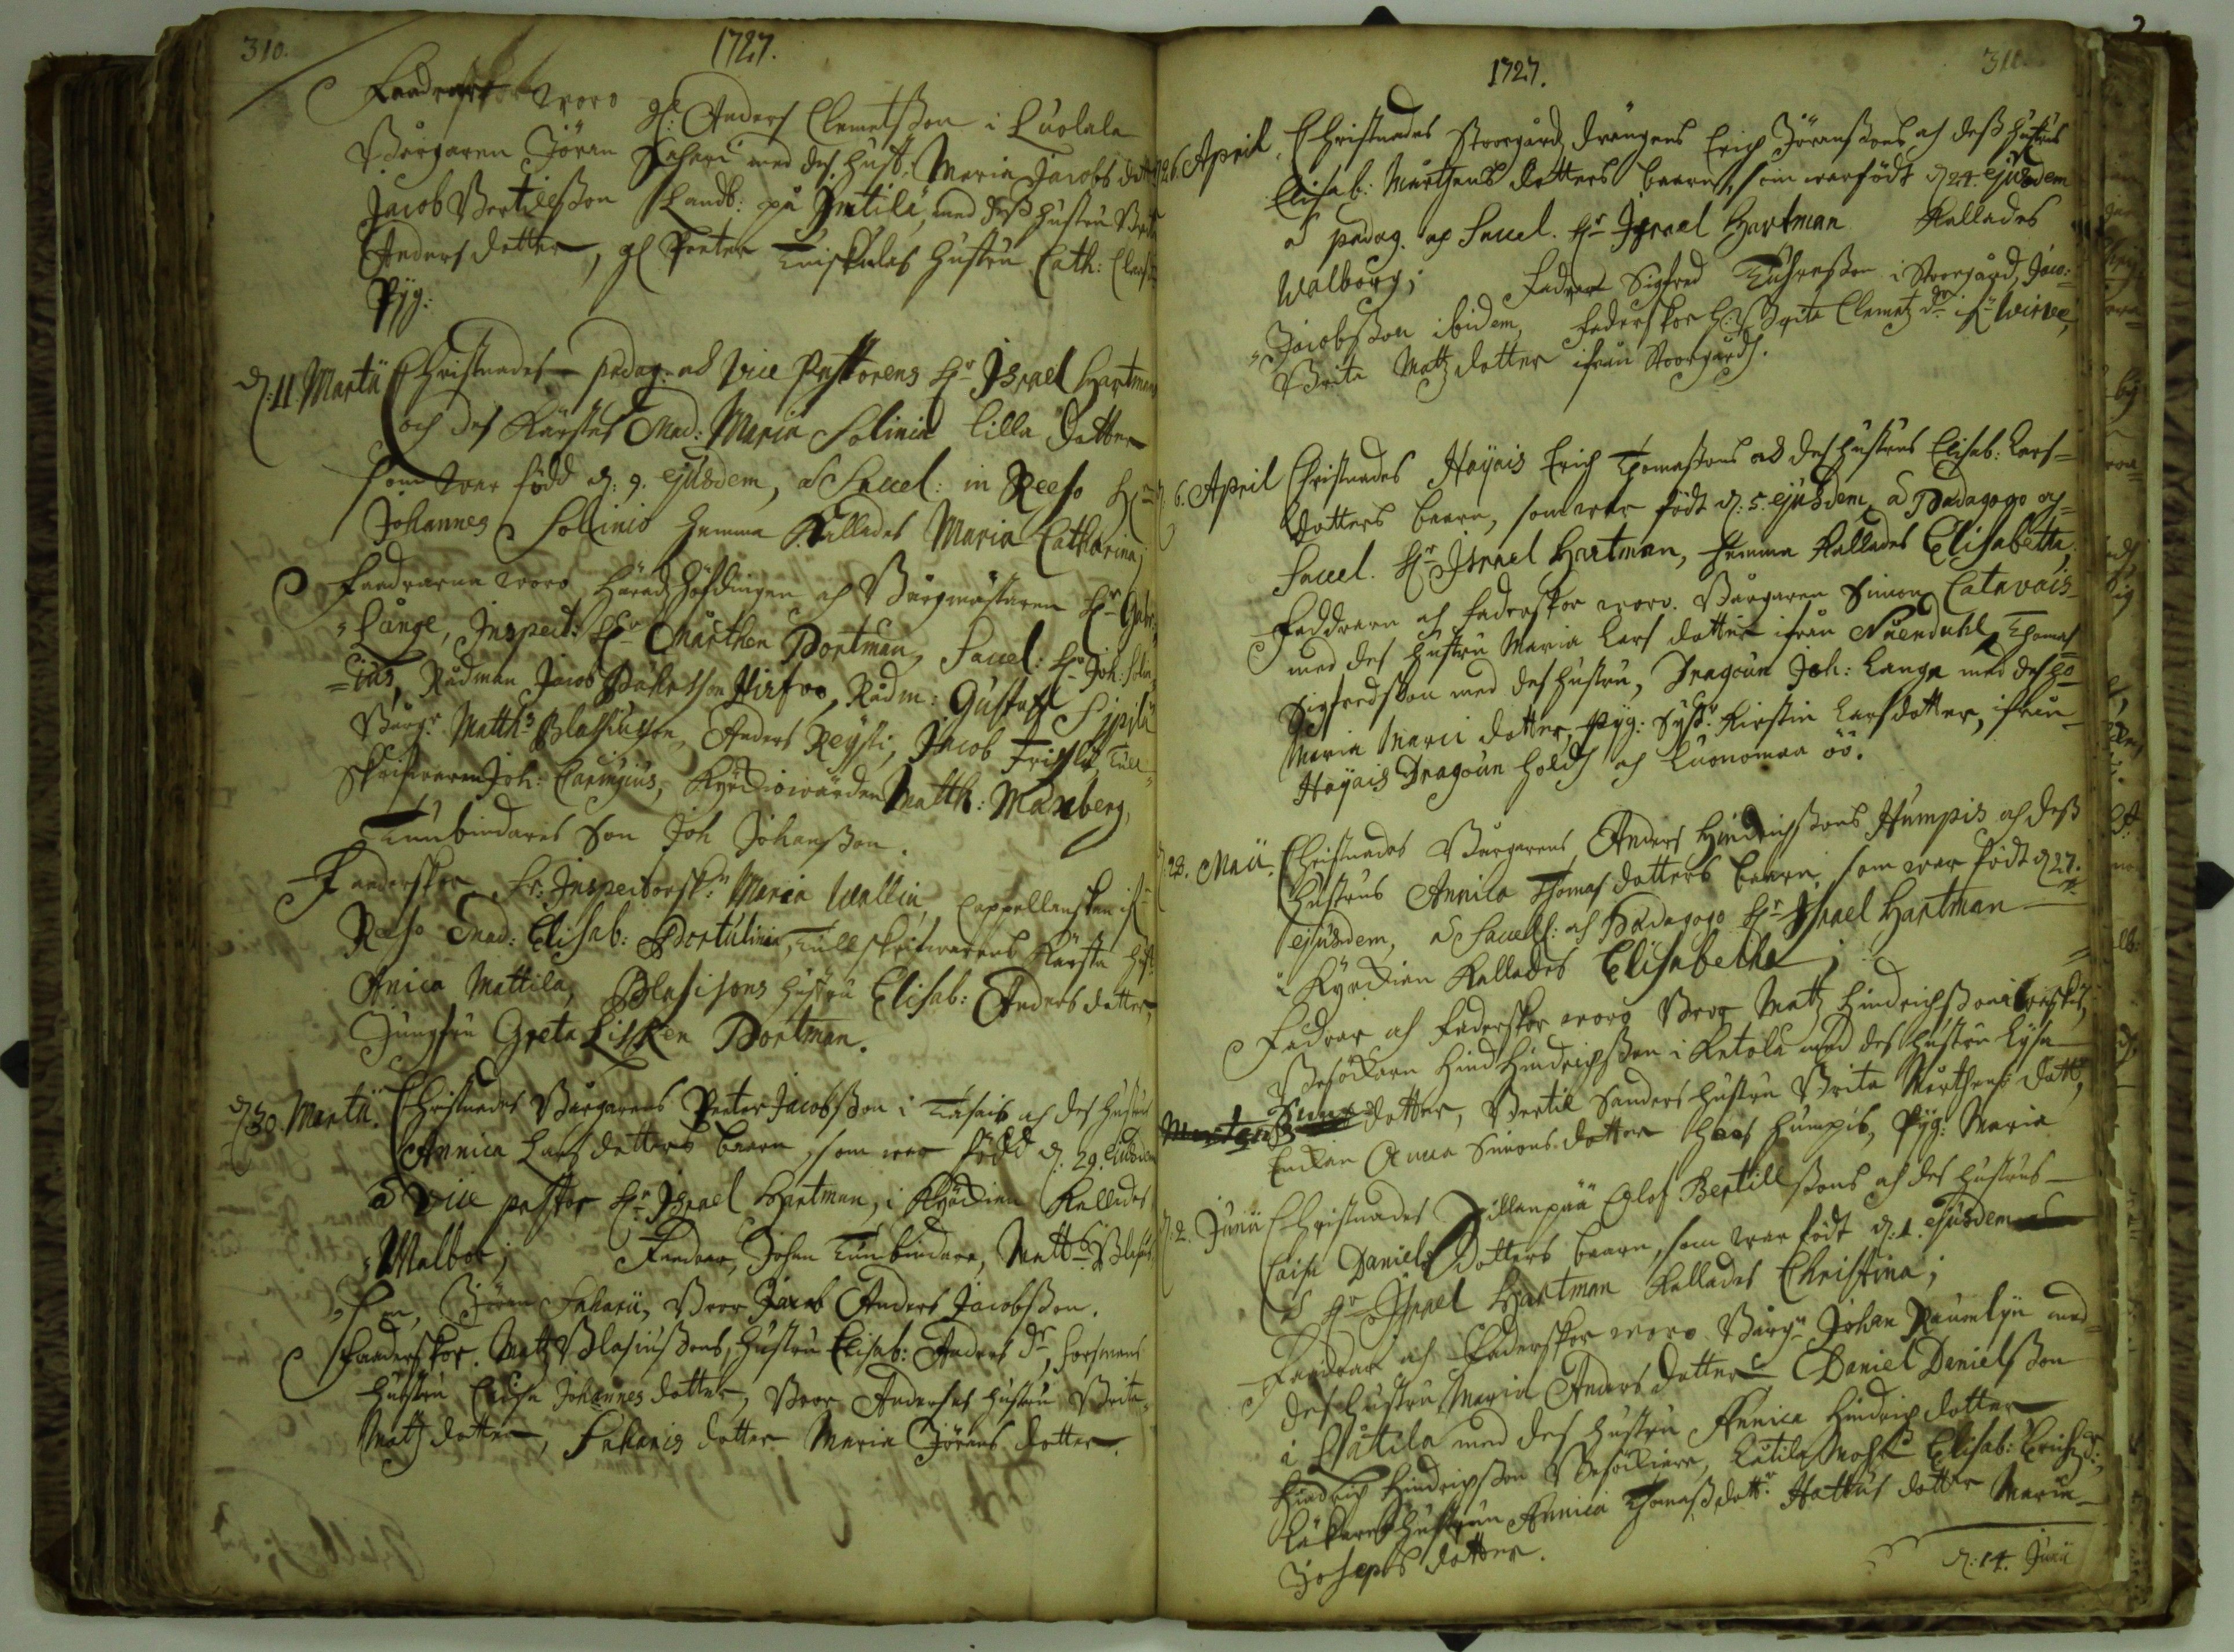 310.
1727.
Faadrar woro gl: Anders Clemetßon i Luolala
Borgaren Jöran Sakari med des hust: Maria Jacobs dott
Jacob Bertilßon Landb: på Pintilä, med deß hustru Brita
Anders dotter, gl Peeter Tuiskulas hustru Cath: Claes
Pyg:
d: 11 Martii Christnades pædag. och Vice Pastorens Hr Israel Hartmans
och des Kärestes Mad: Maria Solinia lilla dotter
som war född d: 9. ejusdem, a Sacel: in Reeso Hr
Johannes Solinio hemma Kallades Maria Catharina;
Faadrarna woro Häradzhöfdingen och Borgmästaren Hr Gabr:
Lange, Inspect: Hr Mårthen Portman, Sacel: Hr Joh: Solin
ius, Rådman Jacob Påhlsson Hirfwo, Rådm: Gustaff Sipilä
Borgr Matths Blasiusson, Anders Reysti, Jacob Frisk, Tull
skrifwaren Joh: Carengius, Kyrckiowärden Matth: Maxberg,
Tunbindares Son Joh Johanßon.
Faderskor, Fr: Inspectorsk:n Maria Wallin, Cappellanskan if
Reeso Mad: Elisab: Portulinia, Tullskrifwarens Kärsta hust
Anica Mattila, Blasisons hustru Elisab: Anders dotter,
Jungfru Greta Lisken Portman.
d 30. Martii. Christnades Borgarens Peeter Jacobßon i Tasais och des hustrus
Annica Larß dotters baarn, som war född d. 29. Eiusdem
a Vice pastor Hr Israel Hartman, i Kyrckian Kallades
Walbor; Faadrar, Johan Tunbindare, Matts Blasius
son, Jöran Sakarii, Bror Jacob Anders Jacobßon.
Faderskor. Matz Blasiusßons, hustru Elisab: Anders dr, Forsmans
hustru Caisa Johannes dotter, Bror Andersas hustru Brita
Matz dotter, Sakaris dotter Maria Jörans dotter.
1727.
310
26. April. Christnades Storgårdz drängens Erich Jöranßons och deß hustrus
Elisab: Mårthens dotters baarn, som war födt d 24. ejusdem
a pædag. och Sacel. Hr Israel Hartman Kallades
Walborg; Fadrar Sigfred Tuhresson i Storgård, Jac:
Jacobßon ibidem, Faderskor h: Brita Clemetz dr if Wirwe,
Brita Matz dotter ifrån Storgårdh.
d. 6. April Christnades Hayais Erich Thomaßons och des hustrus Elisab: Lars
dotters baarn, som war födt d: 5. ejusdem, a Pædagogo och
Sacel. Hr Israel Hartman, hemma Kallades Elisabetta.
Faddrarn och faderskor woro. Borgaren Simon Catavais
med des hustru Maria Lars dotter ifrån Nuenduhl, Thomas
Sigfredßon med des hustru, Dragoun Joh: Lange med des ho
Maria Marci dotter, Pyg: Syst. Kirstin Larsdotter, ifrån
Hayais Dragoun hold och Luonomaa öö.
d 28. Maii. Christnades Borgarens Anders Hindrichßons Humpis och deß
hustrus Annica Thomas dotters baarn som war födt d 27.
ejusdem, a Sacell: och Pædagogo Hr Israel Hartman
i Kyrckian Kallades Elisabetha;
Fadrar och faderskor woro Borg Matz Hindrichßon
Besökarn Hind Hindrichßon i Ketola med des hustru Lysa
Mårtens Suns dotter, Bertil Sanders hustru Brita Mårthens dott,
Enckan Anna Simons dotter hoos Humpis, Pyg: Maria
d. 2. Junii Christnades Willanpää Olof Bertillßons och des hustrus
Caisa Daniels dotters baarn, som war födt d: 1. ejusdem
a Hr Israel Hartman Kallades Christina;
Faadrar och Faderskor woro Borgn Johan Raumlyn med
des hustru Maria Anders dotter Daniel Danielßon
i Låtila med des hustru Annica Hindrichdotter
Hindrich Hindrichßon Besöckiare, Låtila Elisab: Erichzd:
hustrun Annica Thomaßdottr Hattus dotter Maria
Josephs dotter.
d: 14. Junii